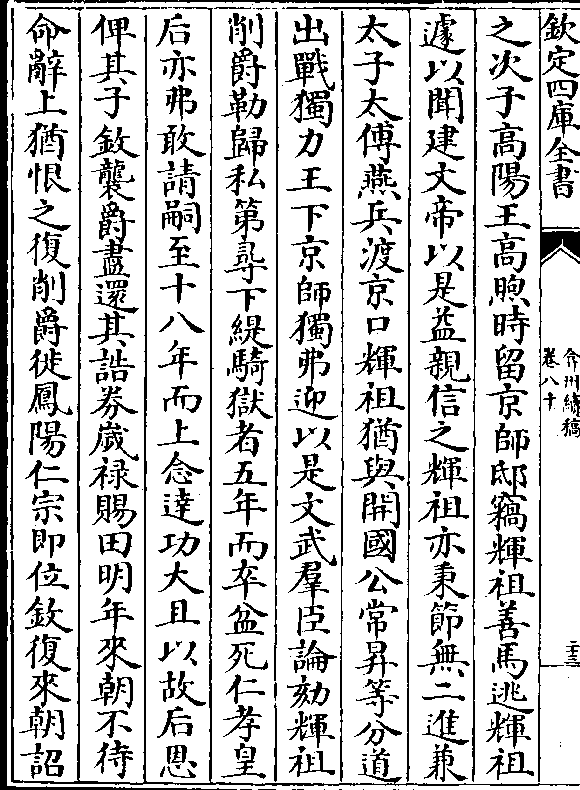 欽定四庫全書
弇州續稿
卷八十
二十三
之次子高陽王高煦時留京師邸竊輝祖善馬逃輝祖
遽以聞建文帝以是益親信之輝祖亦秉節無二進兼
太子太傅燕兵渡京口輝祖猶與開國公常昇等分道
出戰獨力王下京師獨弗迎以是文武羣臣論劾輝祖
削爵勒歸私第尋下緹騎獄者五年而卒盆死仁孝皇
后亦弗敢請嗣至十八年而上念達功大且以故后恩
俾其子欽襲爵盡還其誥券歲祿賜田明年來朝不待
命辭上猶恨之復削爵徙鳳陽仁宗即位欽復來朝詔